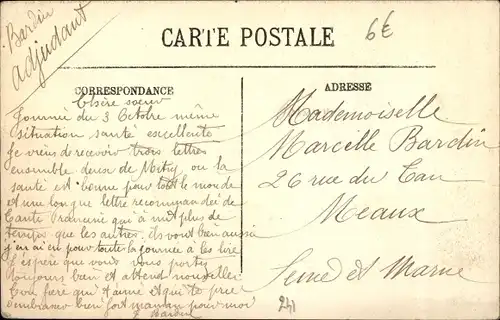 Bardin
adjudant
6€
CARTE POSTALE
CORRESPONDANCE
ADRESSE
Chère soeur
Journée du 3 Octobre même
situation santé excellente
Je viens de recevoir trois lettres
ensemble deux de Mitry, ou la
santé est bonne pour tout le monde
et une longue lettre recommandée de
Tante qui a mit plus de
temps que les autres. ils vont bien aussi
j'en ai eu pour toute la journée à les lire
J'espère que vous vous portez
toujours bien et attend nouvelles
Ton frère qui t'aime et qui te prie
embrasser bien fort maman pour moi
Bardin
Mademoiselle
Marcelle Bardin
26 rue du Tan
Meaux
Seine et Marne
241